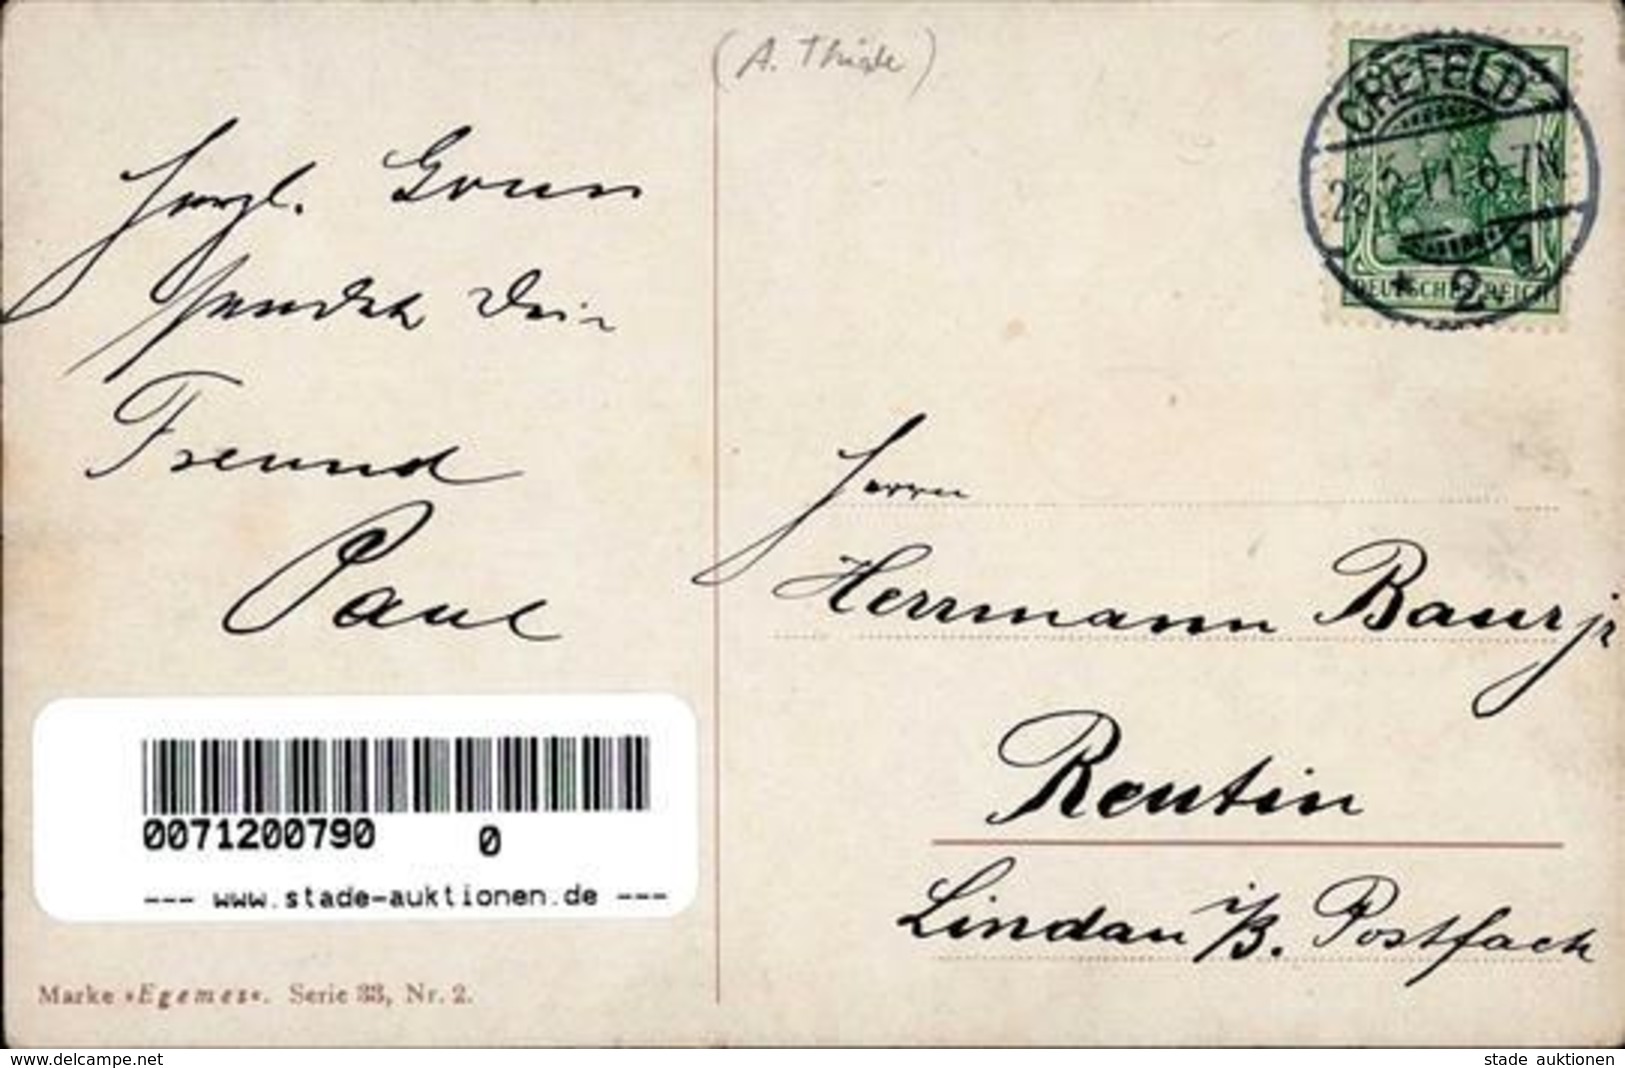 (A. Thiele)
CREFELD
2. 11. 6-7N
* 2
DEUTSCHES REICH
Herzl. Gruss
sendet Dein
Freund
Paul
Herrn
Herrmann Baur jr
Reutin
Lindau i/B. Postfach
0071200790 0
--- www.stade-auktionen.de ---
Marke »Egemes«. Serie 33, Nr. 2.
www.delcampe.net
stade auktionen